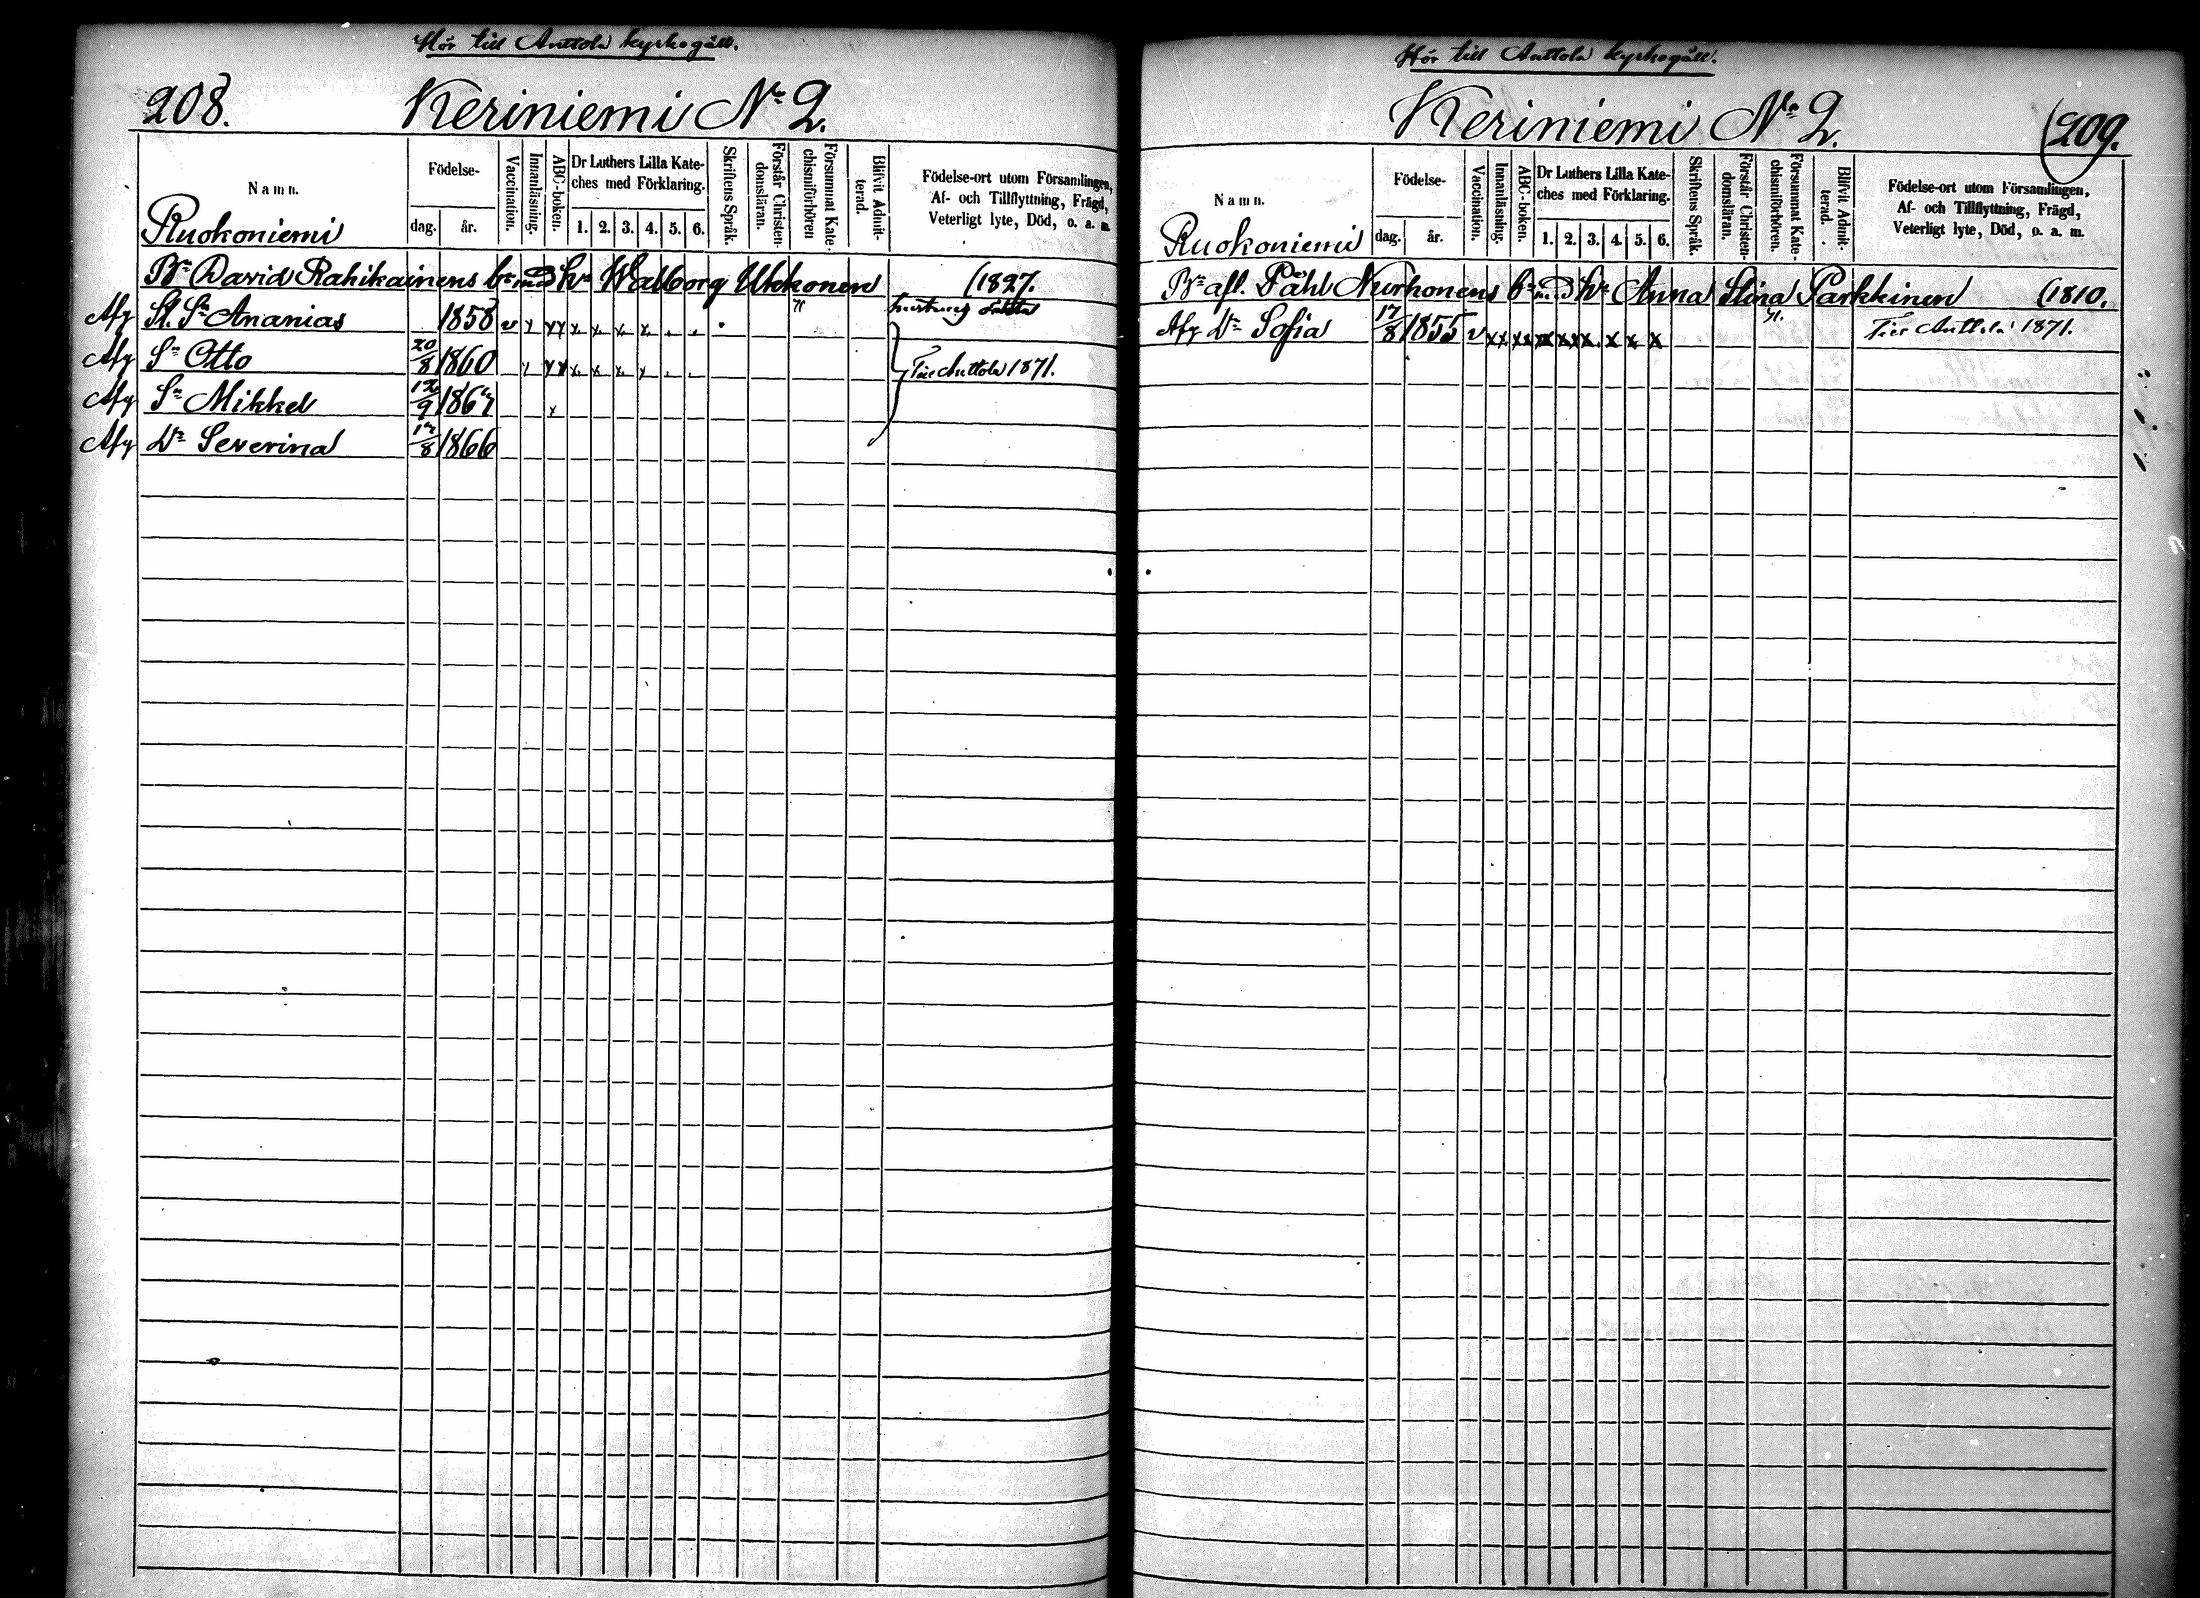 Hör till Anttola kyrkogäll.
208. Keriniemi No 2.
Namn.
Födelse-
dag. år.
Vaccination.
Innanläsning.
ABC-boken.
Dr Luthers Lilla Kate-
ches med Förklaring.
1. 2. 3. 4. 5. 6.
Skriftens Språk.
Förstår Christen-
domsläran.
Försummat Kate-
chismiförhören
Blifvit Admit-
terad.
Födelse-ort utom Församlingen,
Af- och Tillflyttning, Frägd,
Veterligt lyte, Död, o. a. m.
Ruokoniemi
Bn David Rahikainens bn med hu Walborg Ukkonen (1827.
Afg St. Sn Ananias 1858 v x xx x x x x
Afg Sn Otto 20/8 1860 x xx x x x x Till Anttola 1871.
Afg Sn Mikkel 12/9 1864 x
Afg Dr Severina 12/8 1866
Hör till Anttola kyrkogäll.
Keriniemi No 2. (209.
Namn.
Födelse-
dag. år.
Vaccination.
Innanläsning.
ABC-boken.
Dr Luthers Lilla Kate-
ches med Förklaring.
1. 2. 3. 4. 5. 6.
Skriftens Språk.
Förstår Christen-
domsläran.
Försummat Kate-
chismiförhören.
Blifvit Admit-
terad.
Födelse-ort utom Församlingen,
Af- och Tillflyttning, Frägd,
Veterligt lyte, Död, o. a. m.
Ruokoniemi
Bn afl. Påhl Nurhonens bn med hu Anna Stina Parkkinen (1810.
Afg Dr Sofia 17/8 1855 v xx xx xx xx x x x x 71. Till Anttola 1871.